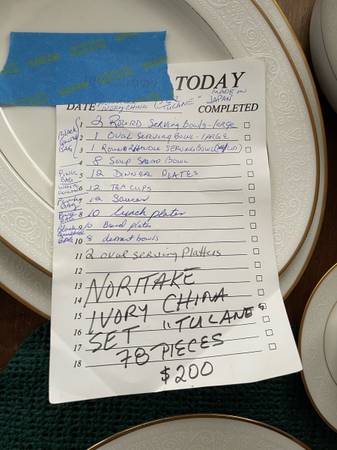 TODAY
DATE IVORY CHINA "TULANE" MADE IN JAPAN
COMPLETED
1 2 ROUND SERVING BOWLS - LARGE
2 1 OVAL SERVING BOWL - LARGE
3 1 ROUND 2 HANDLE SERVING BOWL
4 8 SOUP SALAD BOWL
5 12 DINNER PLATES
6 12 TEA CUPS
7 12 Saucer
8 10 Lunch plates
9 10 Bread plates
10 8 dessert bowls
11 2 oval serving Platters
12
13 NORITAKE
14
15 IVORY CHINA
16 SET "TULANE"
17 78 PIECES
18
$200